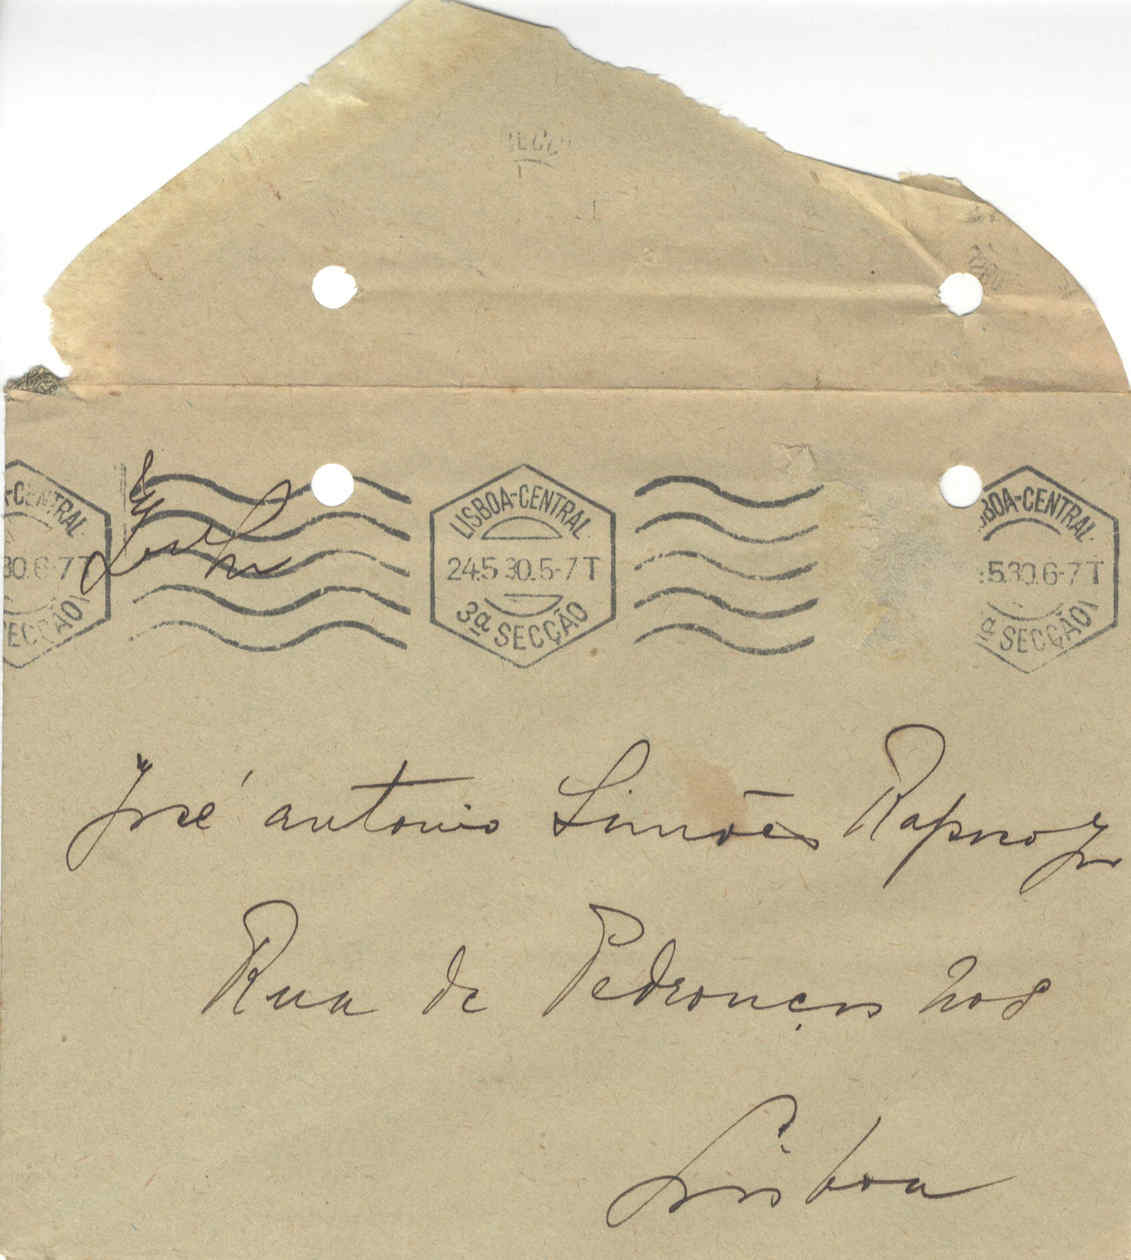 -CENTRAL
30.6-7T
SECÇÃO
LISBOA-CENTRAL
24.5 30.5-7T
3ª SECÇÃO
BOA-CENTRAL
:5.30.6-7T
ª SECÇÃO
José Antonio Simões Raposo Jr
Rua de Pedrouços 208
Lisboa